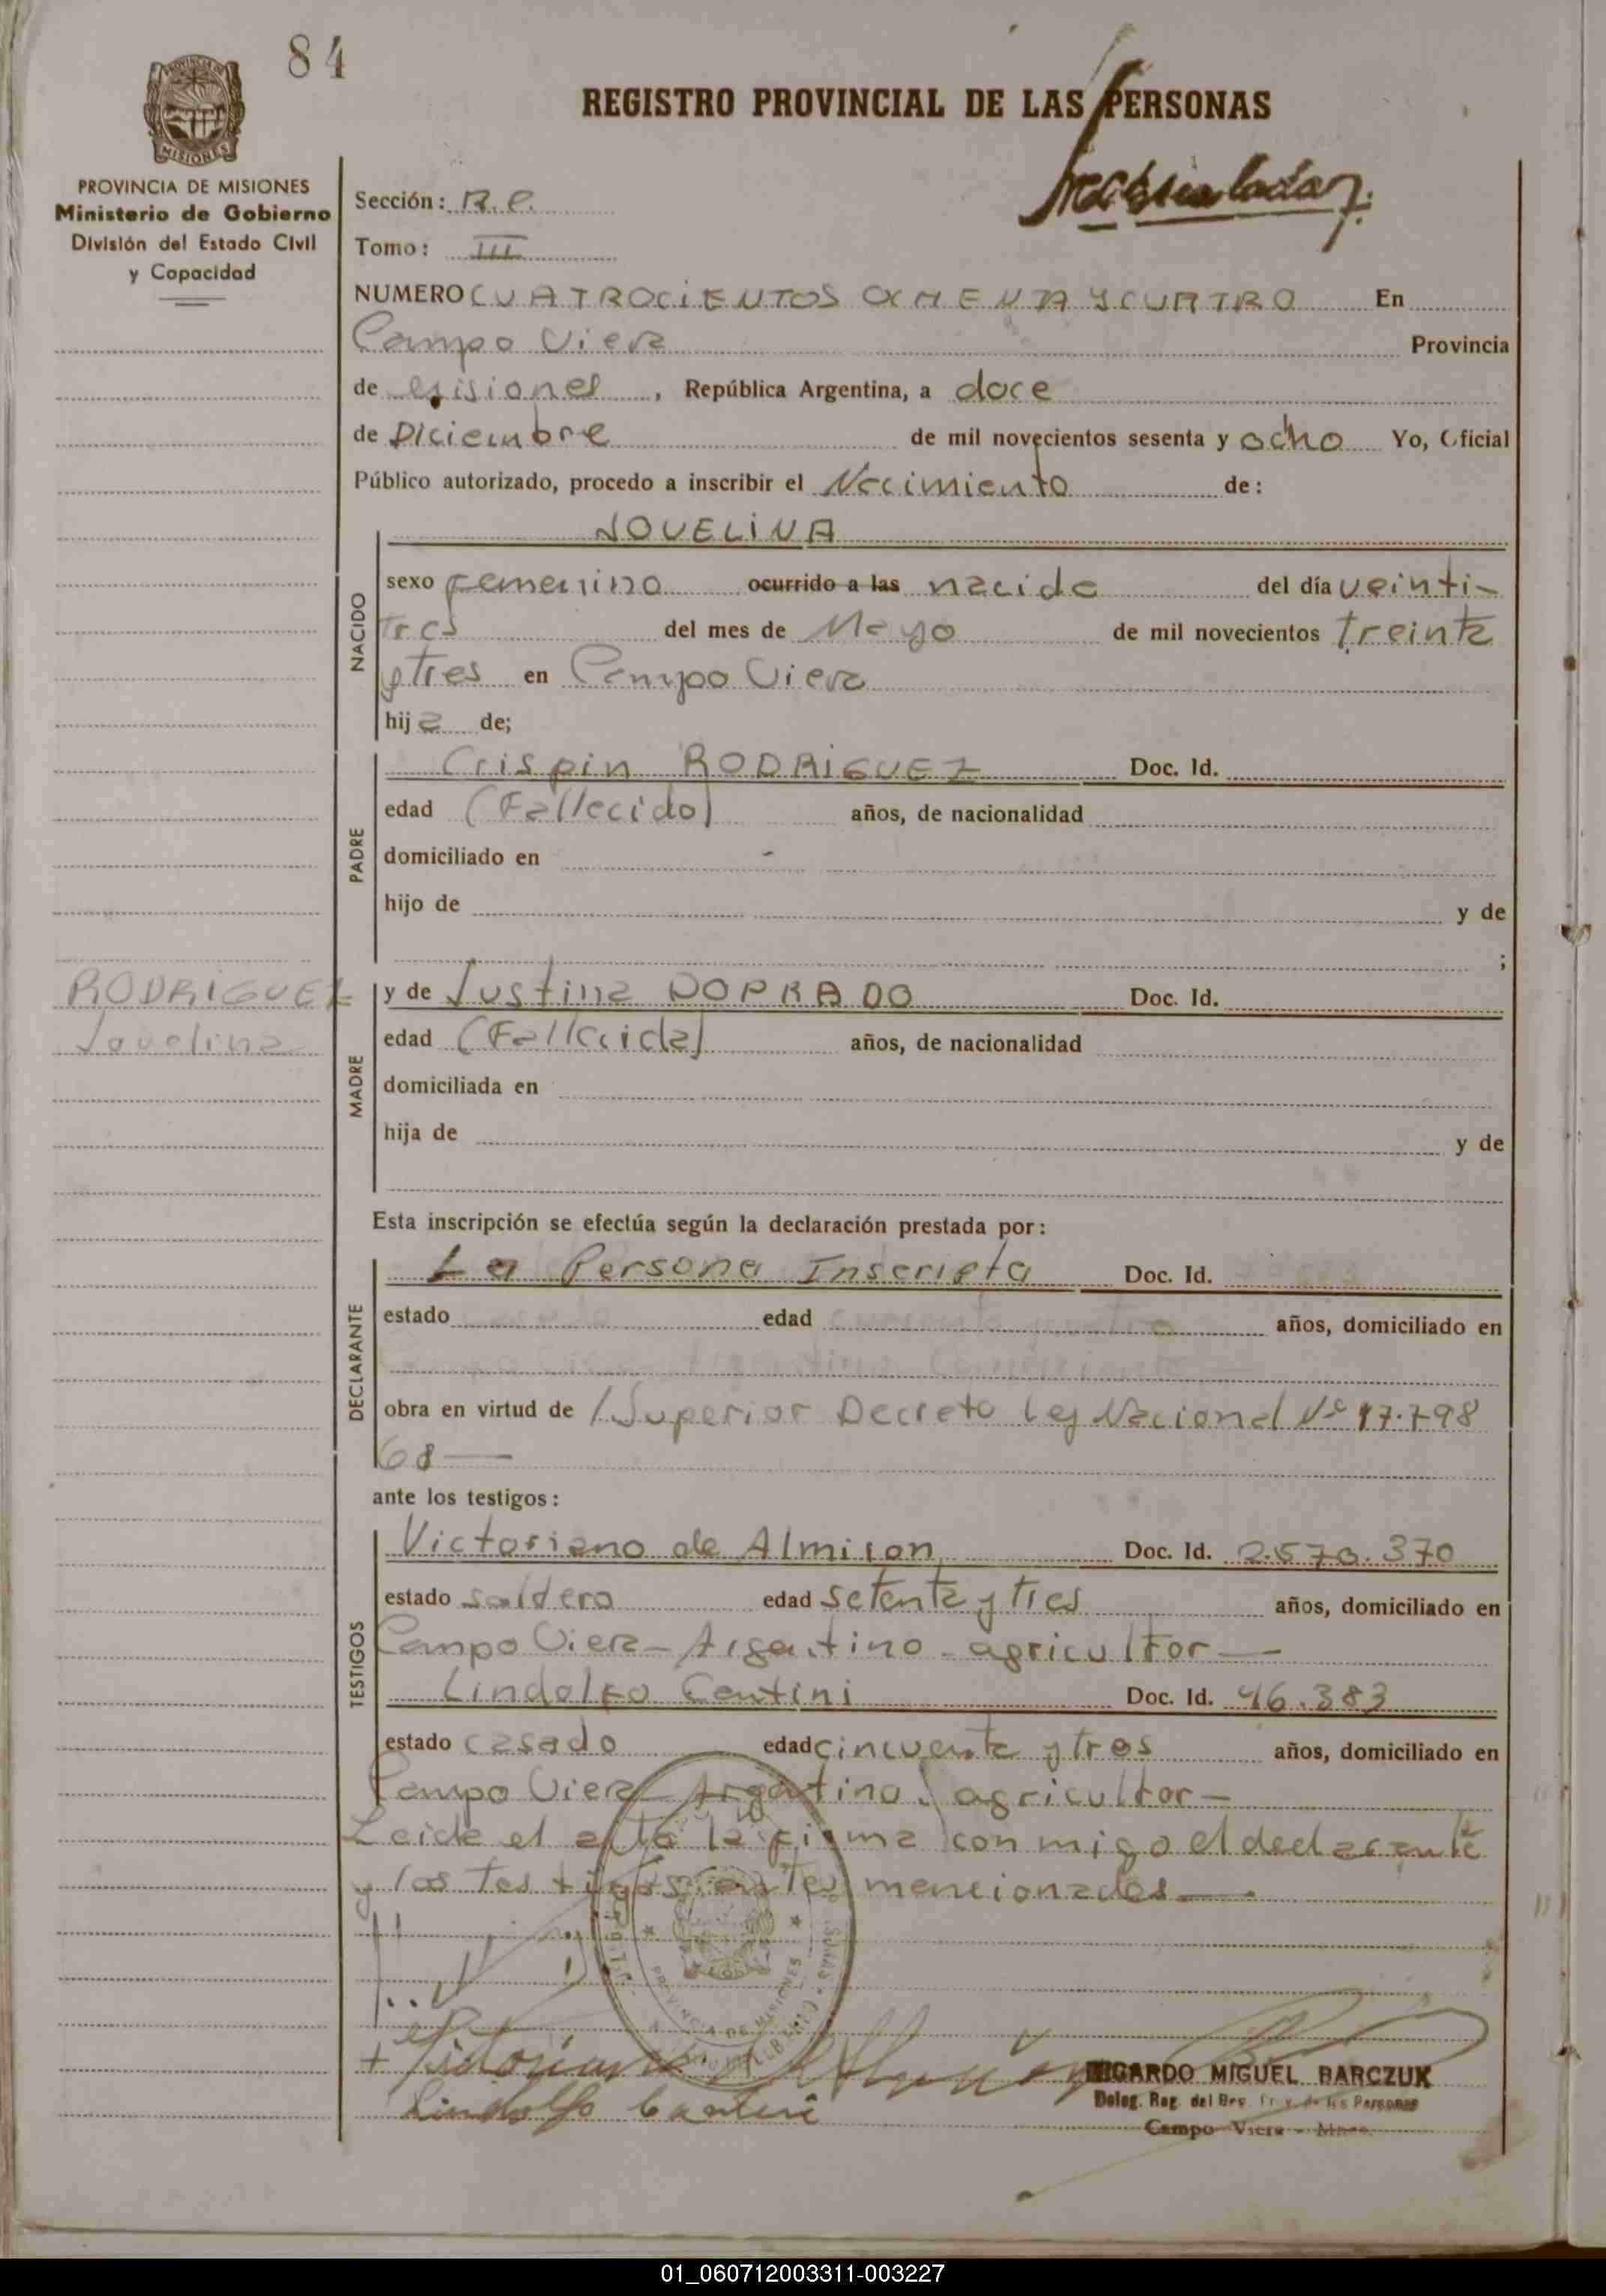 84
REGISTRO PROVINCIAL DE LAS PERSONAS
PROVINCIA DE MISIONES
Ministerio de Gobierno
División del Estado Civil
y Capacidad
Sección: R.e.
Tomo: III
NUMERO CUATROCIENTOS OCHENTA Y CUATRO En
Campo Viera Provincia
de Misiones, República Argentina, a doce
de Diciembre de mil novecientos sesenta y ocho Yo, Oficial
Público autorizado, procedo a inscribir el Nacimiento de:
JOVELINA
NACIDO
sexo femenino ocurrido a las nacida del día veinti-
tres del mes de Mayo de mil novecientos treinta
y tres en Campo Viera
hija de;
PADRE
Crispin RODRIGUEZ Doc. Id.
edad (Fallecido) años, de nacionalidad
domiciliado en
hijo de y de
;
RODRIGUEZ
Jovelina
MADRE
y de Justina DOPRADO Doc. Id.
edad (Fallecida) años, de nacionalidad
domiciliada en
hija de y de
Esta inscripción se efectúa según la declaración prestada por:
DECLARANTE
La Persona Inscripta Doc. Id.
estado edad años, domiciliado en
obra en virtud de /Superior Decreto Ley Nacional Nº 17.798
68—
ante los testigos:
TESTIGOS
Victoriano de Almiron Doc. Id. 2.570.370
estado soldero edad setenta y tres años, domiciliado en
Campo Viera - Argentino - agricultor —
Lindolfo Centini Doc. Id. 46.383
estado casado edad cincuenta y tres años, domiciliado en
Campo Viera Argentino. agricultor —
Leida el acta la firma con migo el declarante
y los testigos antes mencionados —.
PROVINCIA DE MISIONES
RICARDO MIGUEL BARCZUK
Deleg. Reg. del Reg. Prov. de las Personas
Lindolfo Centini
Campo Viera - Mnes.
01_060712003311-003227